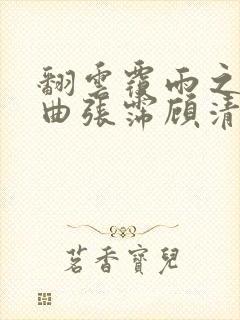 翻雲覆雨之
曲張霈顧清
茗香寶兒